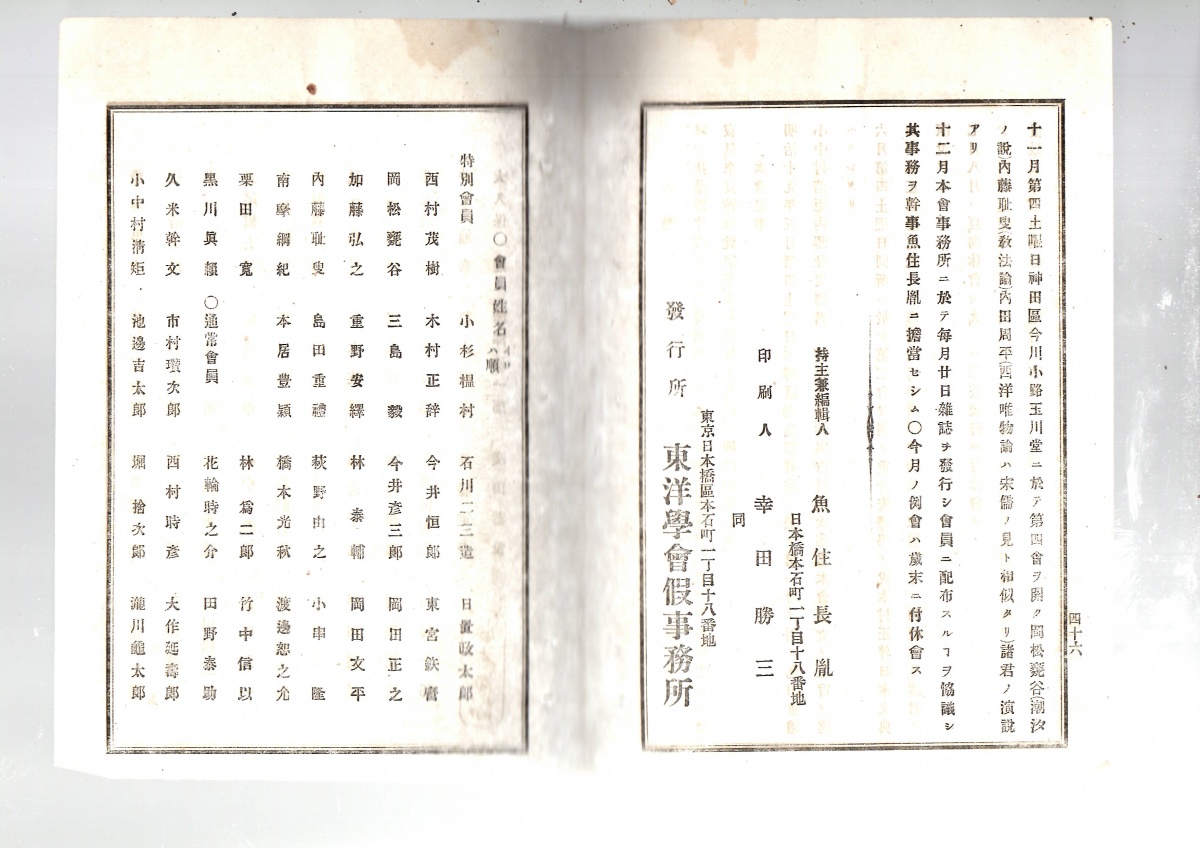 十一月第四土曜日神田區今川小路玉川堂ニ於テ第四會ヲ開ク岡松甕谷(潮汐
ノ說)內藤耻叟(敎法論)內田周平(西洋唯物論ハ宋儒ノ見ト相似タリ)諸君ノ演說
アリ
十二月本會事務所ニ於テ每月廿日雜誌ヲ發行シ會員ニ配布スルヿヲ協議シ
其事務ヲ幹事魚住長胤ニ擔當セシム〇今月ノ例會ハ歲末ニ付休會ス
持主兼編輯人 魚住長胤
日本橋本石町一丁目十八番地
印刷人 幸田勝三
同
東京日本橋區本石町一丁目十八番地
發行所 東洋學會假事務所
四十六
〇會員姓名 イロハ順
特別會員 小杉榲村 石川二三造 日置政太郞
西村茂樹 木村正辭 今井恒郞 東宮鉄
岡松甕谷 三島毅 今井彥三郞 岡田正之
加藤弘之 重野安繹 林泰輔 岡田文平
內藤耻叟 島田重禮 萩野由之 小串隆
南摩綱紀 本居豊穎 橋本光秋 渡邊恕之允
栗田寬 林爲二郞 竹中信以
黑川眞賴 〇通常會員 花輪時之介 田野泰助
久米幹文 市村瓚次郞 西村時彥 大作延壽郞
小中村淸矩 池邊吉太郞 堀捨次郞 瀧川龜太郞